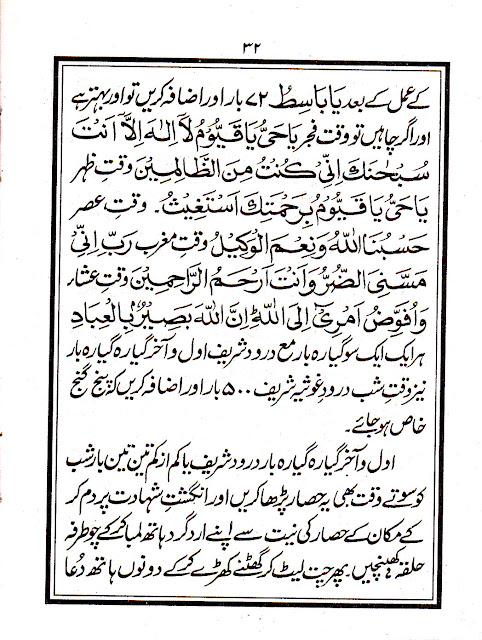 ۳۲
کے عمل کے بعد یَا بَاسِطُ ۷۲ بار اور اضافہ کریں تو اور بہتر ہے
اور اگر چاہیں تو وقت فجر یَا حَیُّ یَا قَیُّوْمُ لَا اِلٰهَ اِلَّا اَنْتَ
سُبْحٰنَكَ اِنِّیْ كُنْتُ مِنَ الظَّالِمِیْنَ وقتِ ظہر
یَا حَیُّ یَا قَیُّوْمُ بِرَحْمَتِكَ اَسْتَغِیْثُ۔ وقتِ عصر
حَسْبُنَا اللّٰهُ وَنِعْمَ الْوَكِیْلُ وقتِ مغرب رَبِّ اِنِّیْ
مَسَّنِیَ الضُّرُّ وَاَنْتَ اَرْحَمُ الرَّاحِمِیْنَ وقتِ عشاء
وَاُفَوِّضُ اَمْرِیْ اِلَی اللّٰهِ اِنَّ اللّٰهَ بَصِیْرٌۢ بِالْعِبَادِ
ہر ایک ایک سو گیارہ بار مع درود شریف اول و آخر گیارہ گیارہ بار
نیز وقتِ شب درود غوثیہ شریف ۵۰۰ بار اور اضافہ کریں کہ پنج گنج
خاص ہو جائے۔
اول و آخر گیارہ گیارہ بار درود شریف یا کم از کم تین تین بار شب
کو سوتے وقت بھی یہ حصار پڑھا کریں اور انگشتِ شہادت پر دم کر
کے مکان کے حصار کی نیت سے اپنے ارد گرد ہاتھ لمبا کر کے چو طرفہ
حلقہ کھینچیں۔ پھر چت لیٹ کر گھٹنے کھڑے کر کے دونوں ہاتھ دُعا